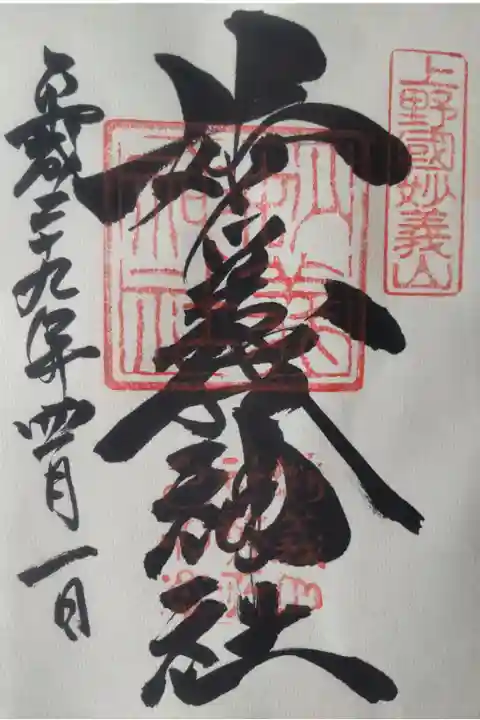 上野國妙義山
妙義神社
平成二十九年四月一日